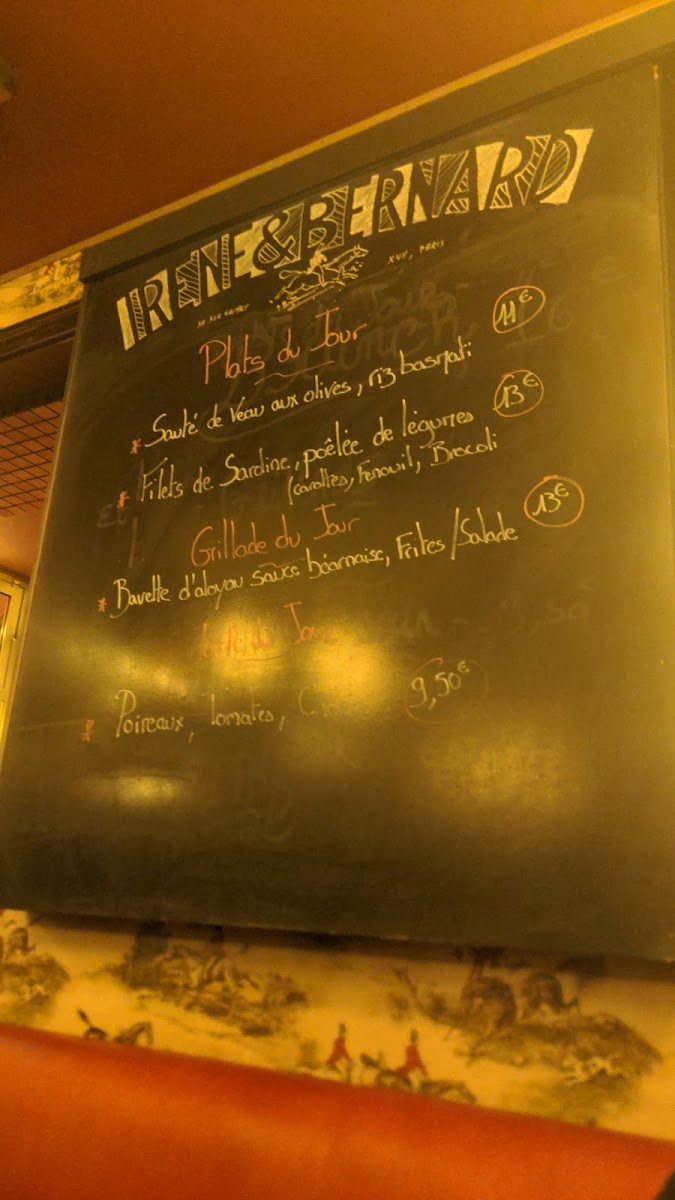 IRENE & BERNARD
XVII, PARIS
Plats du Jour
* Sauté de Veau aux olives, riz basmati 11€
* Filets de Sardine, poêlée de légumes 13€
(carottes, Fenouil, Brocoli
Grillade du Jour
* Bavette d'aloyau sauce béarnaise, Frites/Salade 13€
du Jour
* Poireaux, Tomates, 9,50€